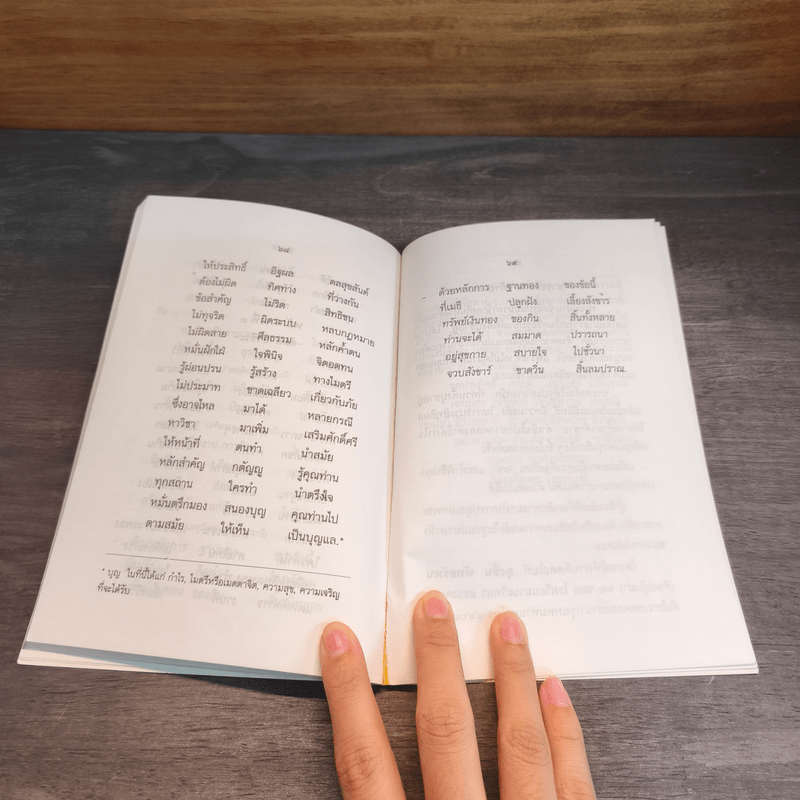 ๖๘
ให้ประสิทธิ์ อิฐผล ดลสุขสันต์
ต้องไม่ผิด ทิศทาง ที่วางกัน
ข้อสำคัญ ไม่ริด สิทธิชน
ไม่ทุจริต ผิดระบบ หลบกฎหมาย
ไม่ผิดสาย ศีลธรรม หลักค้ำตน
หมั่นฝักใฝ่ ใจพินิจ จิตอดทน
รู้ผ่อนปรน รู้สร้าง ทางไมตรี
ไม่ประมาท ชาดเฉลียว เกี่ยวกับภัย
ซึ่งอาจไหล มาได้ หลายกรณี
หาวิชา มาเพิ่ม เสริมศักดิ์ศรี
ให้หน้าที่ ตนทำ นำสมัย
หลักสำคัญ กตัญญู รู้คุณท่าน
ทุกสถาน ใครทำ นำตรึงใจ
หมั่นตรึกมอง สนองบุญ คุณท่านไป
ตามสมัย ให้เห็น เป็นบุญแล.*
* บุญ ในที่นี้ได้แก่ กำไร, ไมตรีหรือเมตตาจิต, ความสุข, ความเจริญ
ที่จะได้รับ
๖๙
ด้วยหลักการ ฐานทอง ของข้อนี้
ที่เมธี ปลูกฝัง เลี้ยงสังขาร
ทรัพย์เงินทอง ของกิน สิ้นทั้งหลาย
ท่านจะได้ สมมาด ปรารถนา
อยู่สุขกาย สบายใจ ไปชั่วนา
จวบสังขาร์ ขาดวิ่น สิ้นลมปราณ.